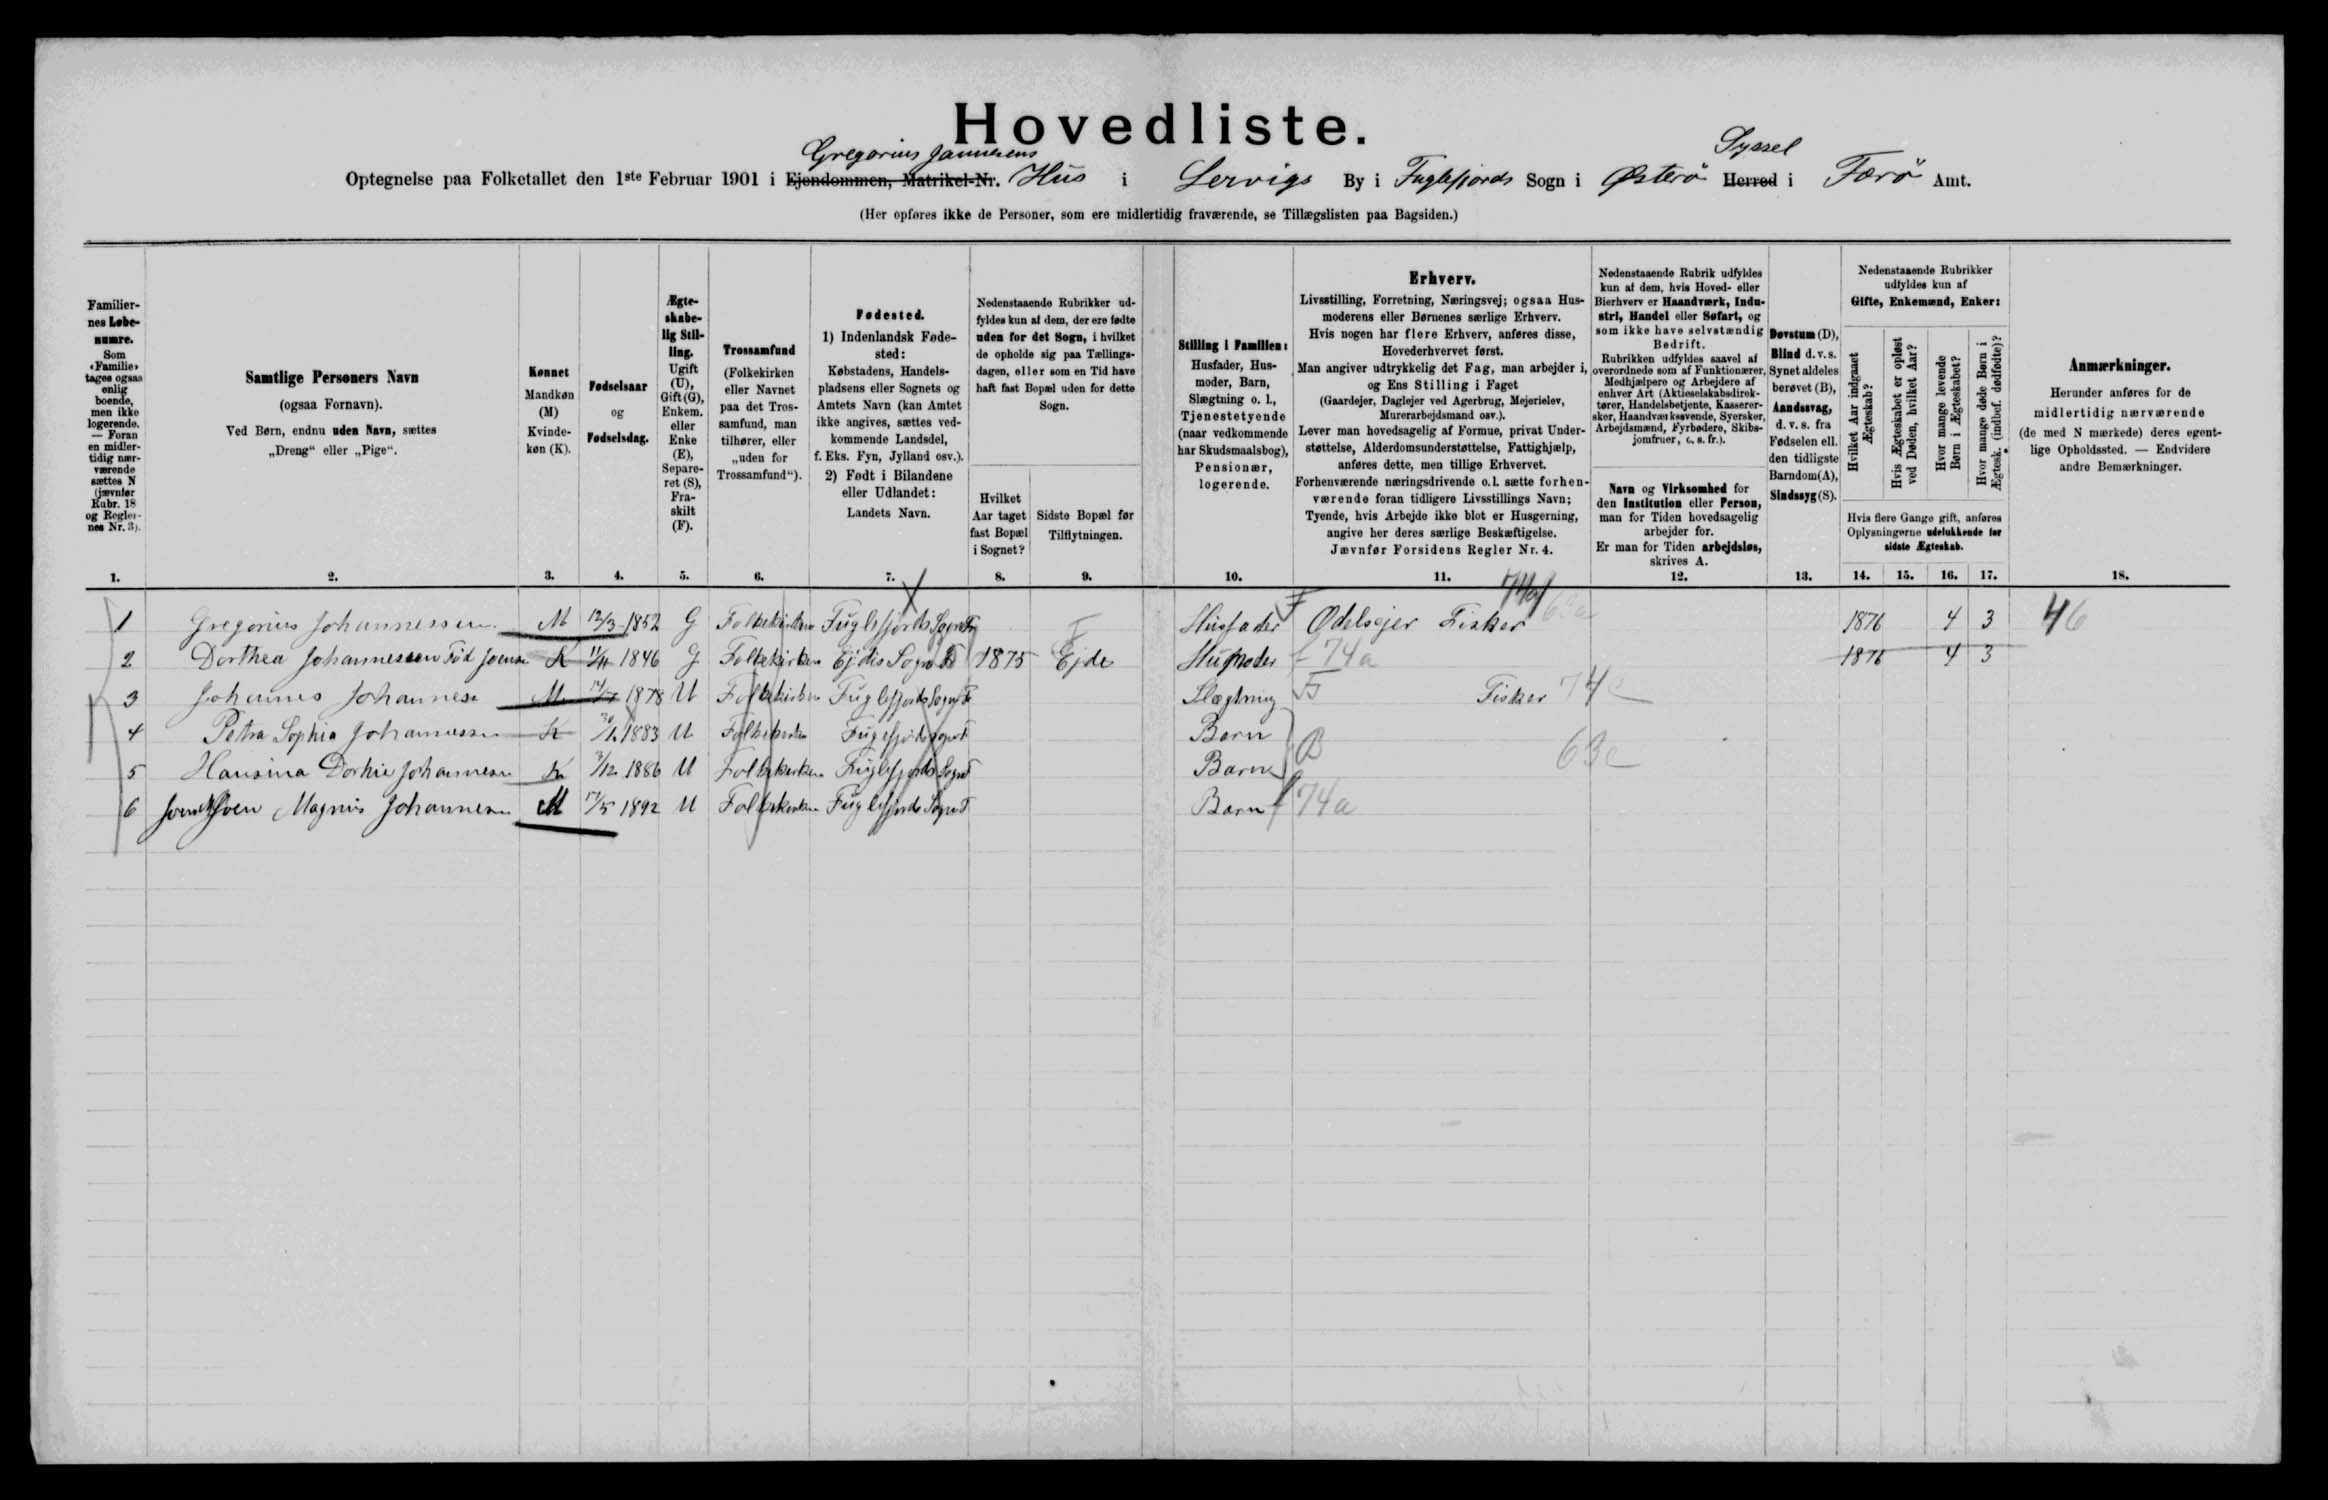 Hovedliste.
Gregorius Joannesens
Syssel
Optegnelse paa Folketallet den 1ste Februar 1901 i Ejendommen, Matrikel-Nr. Hus i Lervigs By i Fuglefjords Sogn i Østerö Herred i Færö Amt.
(Her opføres ikke de Personer, som ere midlertidig fraværende, se Tillægslisten paa Bagsiden.)
Familiernes Løbenumre.
Som «Familie» tages ogsaa enlig boende, men ikke logerende. — Foran en midlertidig nærværende sættes N (jævnfør Rubr. 18 og Reglernes Nr. 3).
Samtlige Personers Navn
(ogsaa Fornavn).
Ved Børn, endnu uden Navn, sættes
„Dreng“ eller „Pige“.
Kønnet
Mandkøn (M)
Kvindekøn (K).
Fødselsaar
og
Fødselsdag.
Ægteskabelig Stilling.
Ugift (U), Gift (G), Enkem. eller Enke (E), Separeret (S), Fraskilt (F).
Trossamfund
(Folkekirken eller Navnet paa det Trossamfund, man tilhører, eller „uden for Trossamfund“).
Fødested.
1) Indenlandsk Fødested:
Købstadens, Handelspladsens eller Sognets og Amtets Navn (kan Amtet ikke angives, sættes vedkommende Landsdel, f. Eks. Fyn, Jylland osv.).
2) Født i Bilandene eller Udlandet:
Landets Navn.
Nedenstaaende Rubrikker udfyldes kun af dem, der ere fødte uden for det Sogn, i hvilket de opholde sig paa Tællingsdagen, eller som en Tid have haft fast Bopæl uden for dette Sogn.
Hvilket Aar taget fast Bopæl i Sognet?
Sidste Bopæl før Tilflytningen.
Stilling i Familien:
Husfader, Husmoder, Barn, Slægtning o. l., Tjenestetyende (naar vedkommende har Skudsmaalsbog), Pensionær, logerende.
Erhverv.
Livsstilling, Forretning, Næringsvej; ogsaa Husmoderens eller Børnenes særlige Erhverv.
Hvis nogen har flere Erhverv, anføres disse, Hovederhvervet først.
Man angiver udtrykkelig det Fag, man arbejder i, og Ens Stilling i Faget
(Gaardejer, Daglejer ved Agerbrug, Mejerielev, Murerarbejdsmand osv.).
Lever man hovedsagelig af Formue, privat Understøttelse, Alderdomsunderstøttelse, Fattighjælp, anføres dette, men tillige Erhvervet.
Forhenværende næringsdrivende o. l. sætte forhenværende foran tidligere Livsstillings Navn;
Tyende, hvis Arbejde ikke blot er Husgerning, angive her deres særlige Beskæftigelse.
Jævnfør Forsidens Regler Nr. 4.
Nedenstaaende Rubrik udfyldes kun af dem, hvis Hoved- eller Bierhverv er Haandværk, Industri, Handel eller Søfart, og som ikke have selvstændig Bedrift.
Rubrikken udfyldes saavel af overordnede som af Funktionærer, Medhjælpere og Arbejdere af enhver Art (Aktieselskabsdirektører, Handelsbetjente, Kasserersker, Haandværkssvende, Syersker, Arbejdsmænd, Fyrbødere, Skibsjomfruer, o. s. fr.).
Navn og Virksomhed for den Institution eller Person, man for Tiden hovedsagelig arbejder for.
Er man for Tiden arbejdsløs, skrives A.
Døvstum (D),
Blind d. v. s. Synet aldeles berøvet (B),
Aandssvag, d. v. s. fra Fødselen ell. den tidligste Barndom (A),
Sindssyg (S).
Nedenstaaende Rubrikker udfyldes kun af
Gifte, Enkemænd, Enker:
Hvilket Aar indgaaet Ægteskab?
Hvis Ægteskabet er opløst ved Døden, hvilket Aar?
Hvor mange levende Børn i Ægteskabet?
Hvor mange døde Børn i Ægtesk. (indbef. dødfødte)?
Hvis flere Gange gift, anføres Oplysningerne udelukkende for sidste Ægteskab.
Anmærkninger.
Herunder anføres for de midlertidig nærværende (de med N mærkede) deres egentlige Opholdssted. — Endvidere andre Bemærkninger.
1. 2. 3. 4. 5. 6. 7. 8. 9. 10. 11. 12. 13. 14. 15. 16. 17. 18.
1 Gregorius Johannessen M 12/3 1852 G Folkekirken Fuglefjords Sogn F Husfader F Odelsejer Fisker 74a 1876 4 3 46
2 Dorthea Johannessen Föd Joensen K 11/11 1846 G Folkekirken Ejdis Sogn F 1875 Ejde F Husmoder f 74a 1876 4 3
3 Johannes Johannesen M 1878 U Folkekirken Fuglefjords Sogn F Slægtning F Fisker 74c
4 Petra Sophia Johannessen K 1883 U Folkekirken Fuglefjords Sogn F Barn B
5 Hansina Dorthie Johannesen K 3/12 1886 U Folkekirken Fuglefjords Sogn F Barn 63c
6 Joen Magnus Johannesen M 17/5 1892 U Folkekirken Fuglefjords Sogn F Barn f 74a